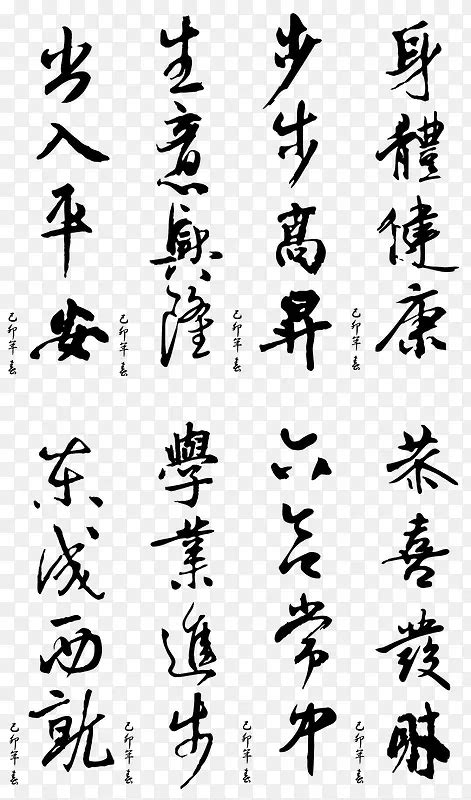 身體健康
己卯年春
步步高昇
己卯年春
生意興隆
己卯年春
出入平安
己卯年春
恭喜發財
己卯年春
六合常中
己卯年春
學業進步
己卯年春
東成西就
己卯年春